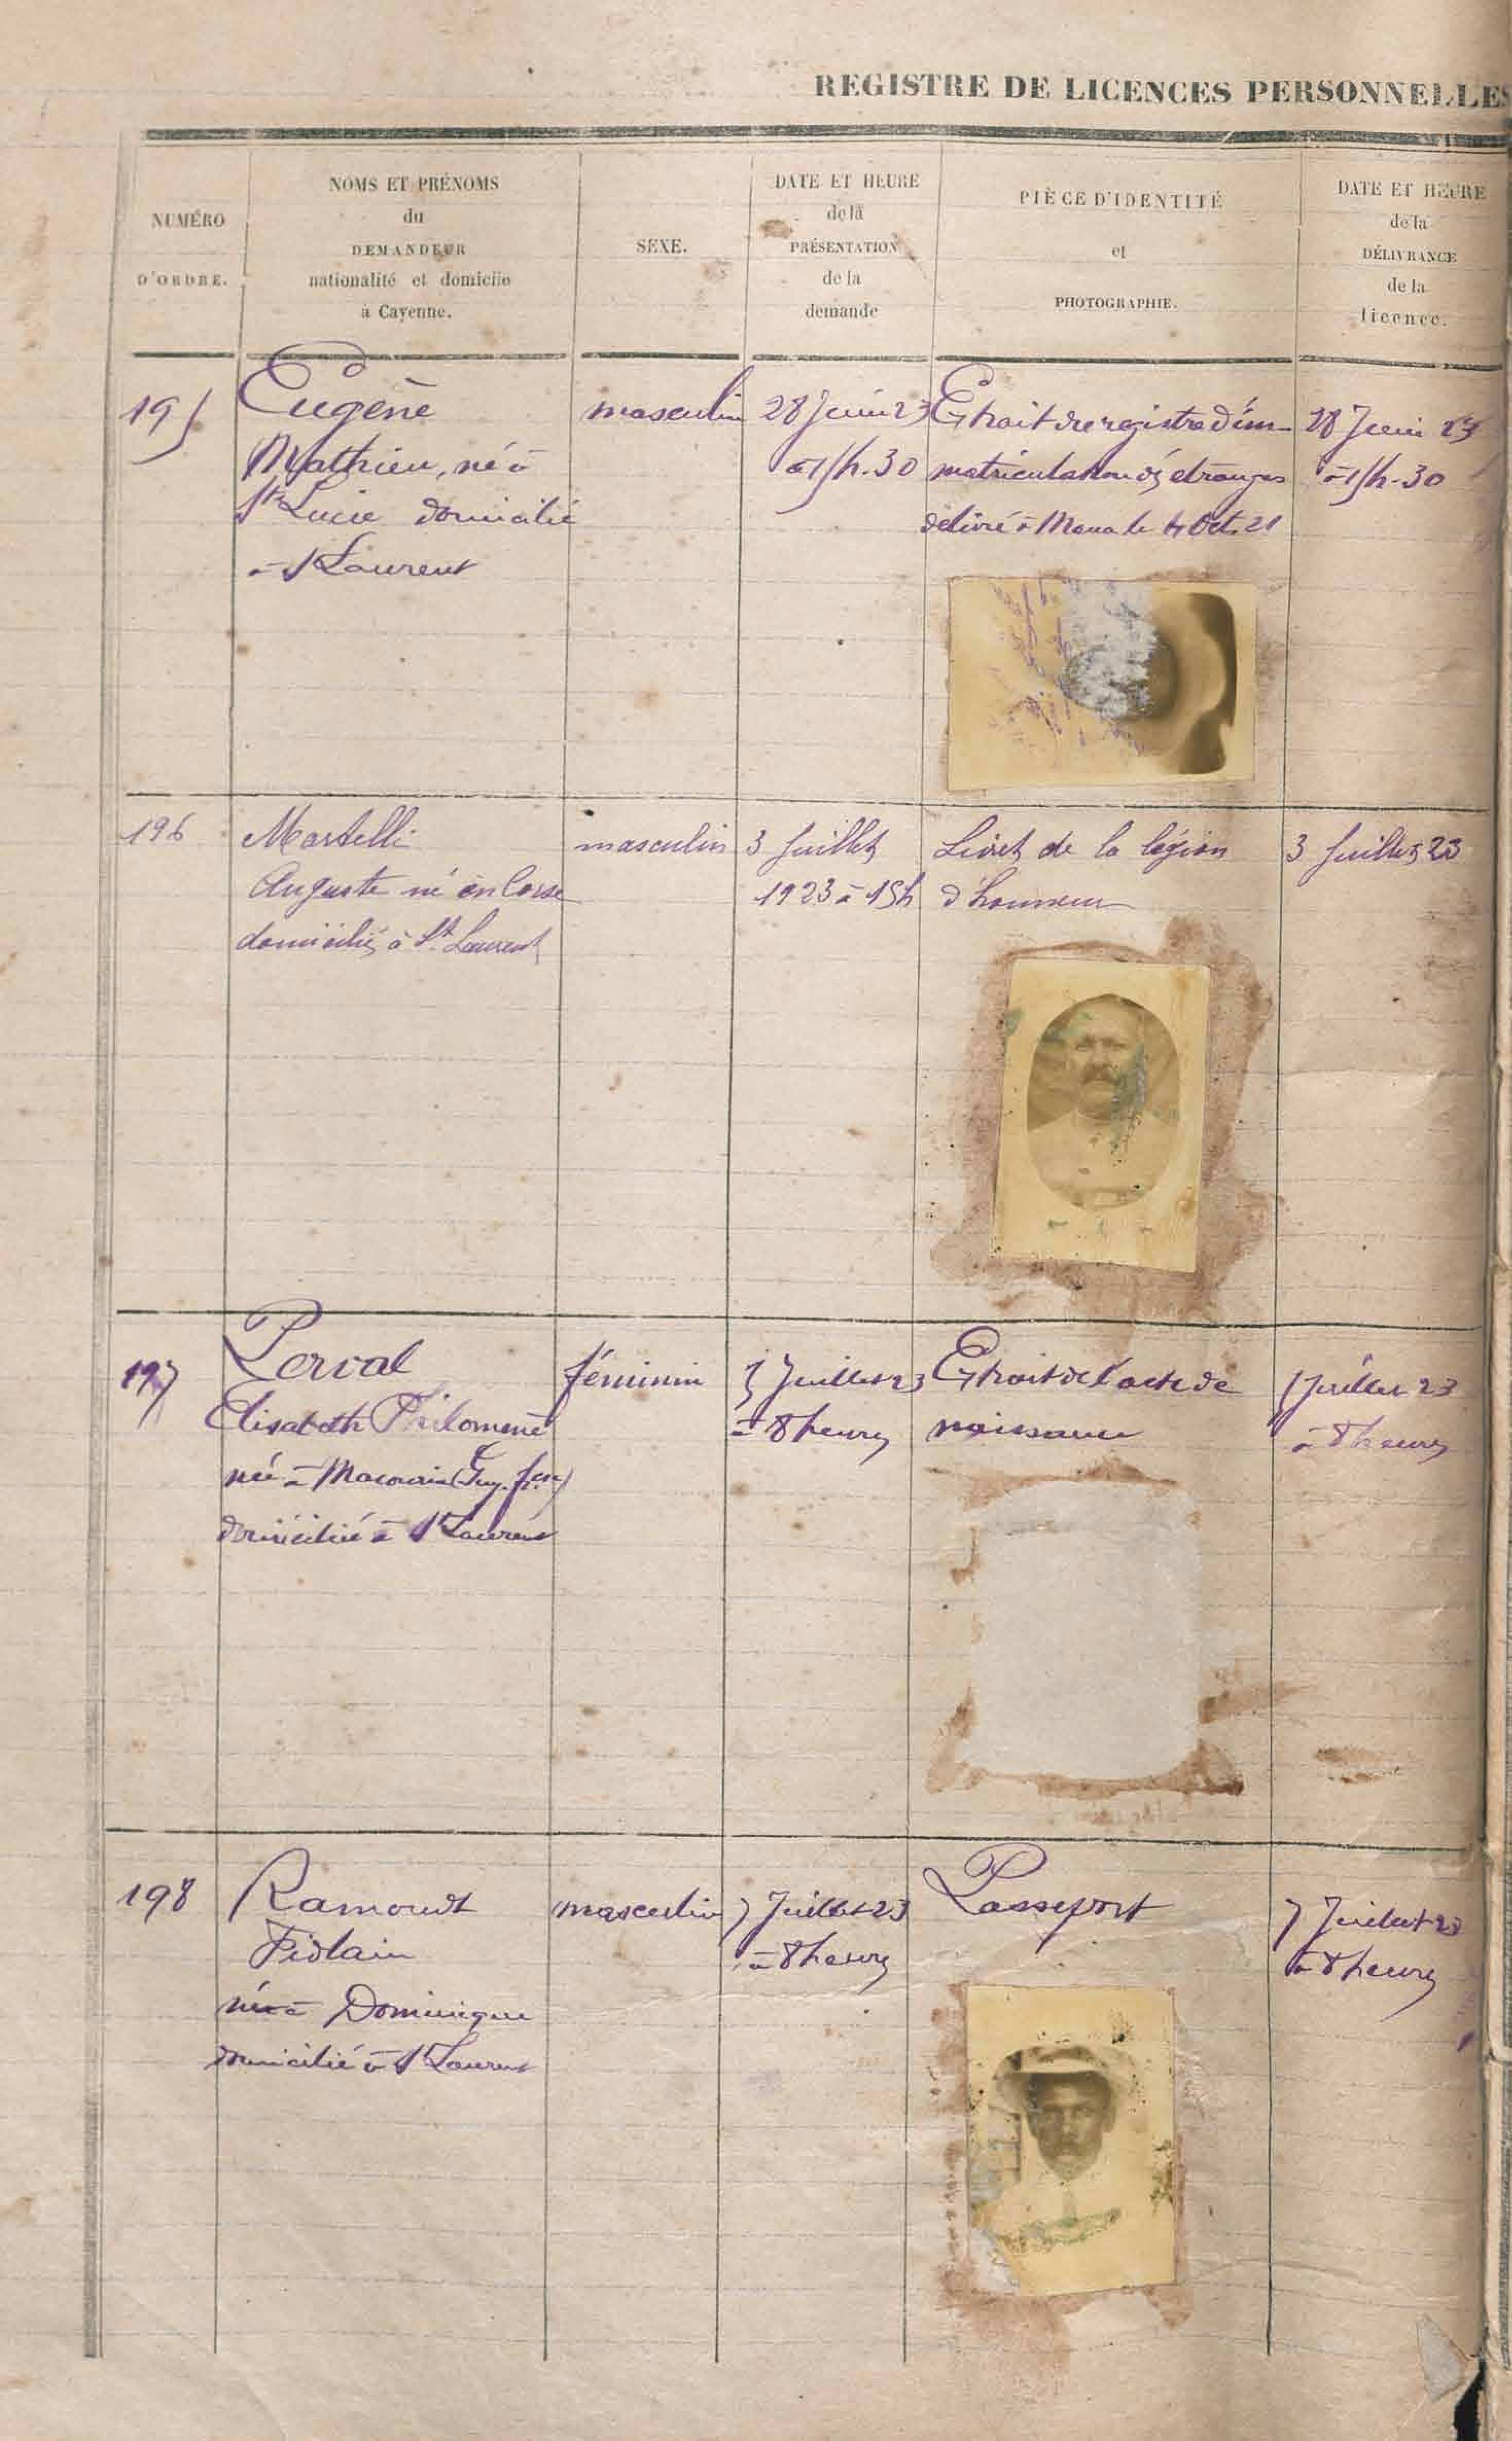 REGISTRE DE LICENCES PERSONNELLES
NUMÉRO
D'ORDRE.
NOMS ET PRÉNOMS
du
DEMANDEUR
nationalité et domicile
à Cayenne.
SEXE.
DATE ET HEURE
de la
PRÉSENTATION
de la
demande
PIÈCE D'IDENTITÉ
et
PHOTOGRAPHIE.
DATE ET HEURE
de la
DÉLIVRANCE
de la
licence.
195
Eugène
Mathieu, né à
Ste Lucie domicilié
à St Laurent
masculin
28 Juin 23
à 15h.30
Extrait de registre d'im-
matriculation des étrangers
délivré à Mana le Oct. 21
28 Juin 23
à 15h-30
196
Martelli
Auguste né en Corse
domicilié à St Laurent
masculin
3 Juillet
1923 à 15h
Livret de la légion
d'honneur
3 Juillet 23
197
Perval
Elisabeth Philomène
née à Macouria (Guy. fse)
domicilié à St Laurent
féminin
5 Juillet 23
à 8 heures
Extrait de l'acte de
naissance
5 Juillet 23
à 8 heures
198
Ramoudt
né à Dominique
domicilié à St Laurent
masculin
7 Juillet 23
à 8 heures
Passeport
7 Juillet 23
à 8 heures